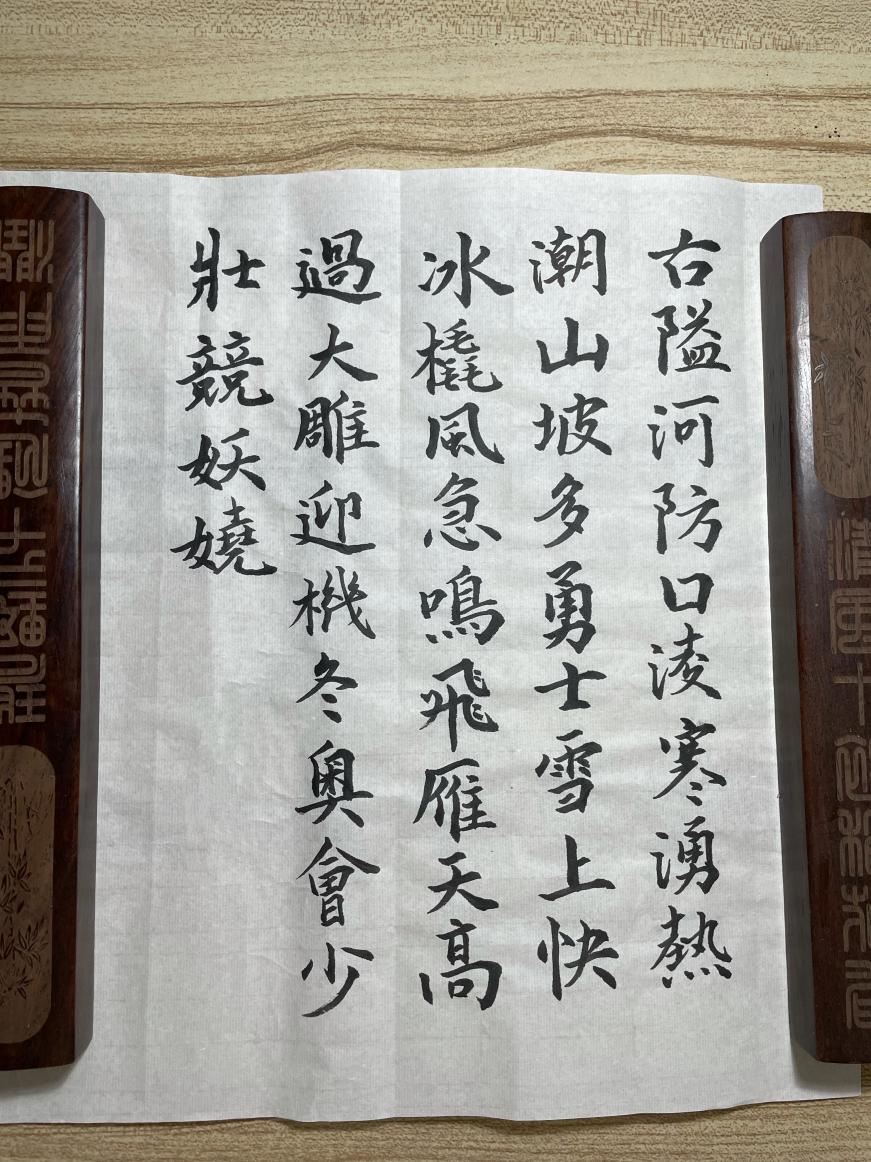 古隘河防口淩寒湧熱
潮山坡多勇士雪上快
冰橇風急鳴飛雁天高
過大雕迎機冬奧會少
壯競妖嬈